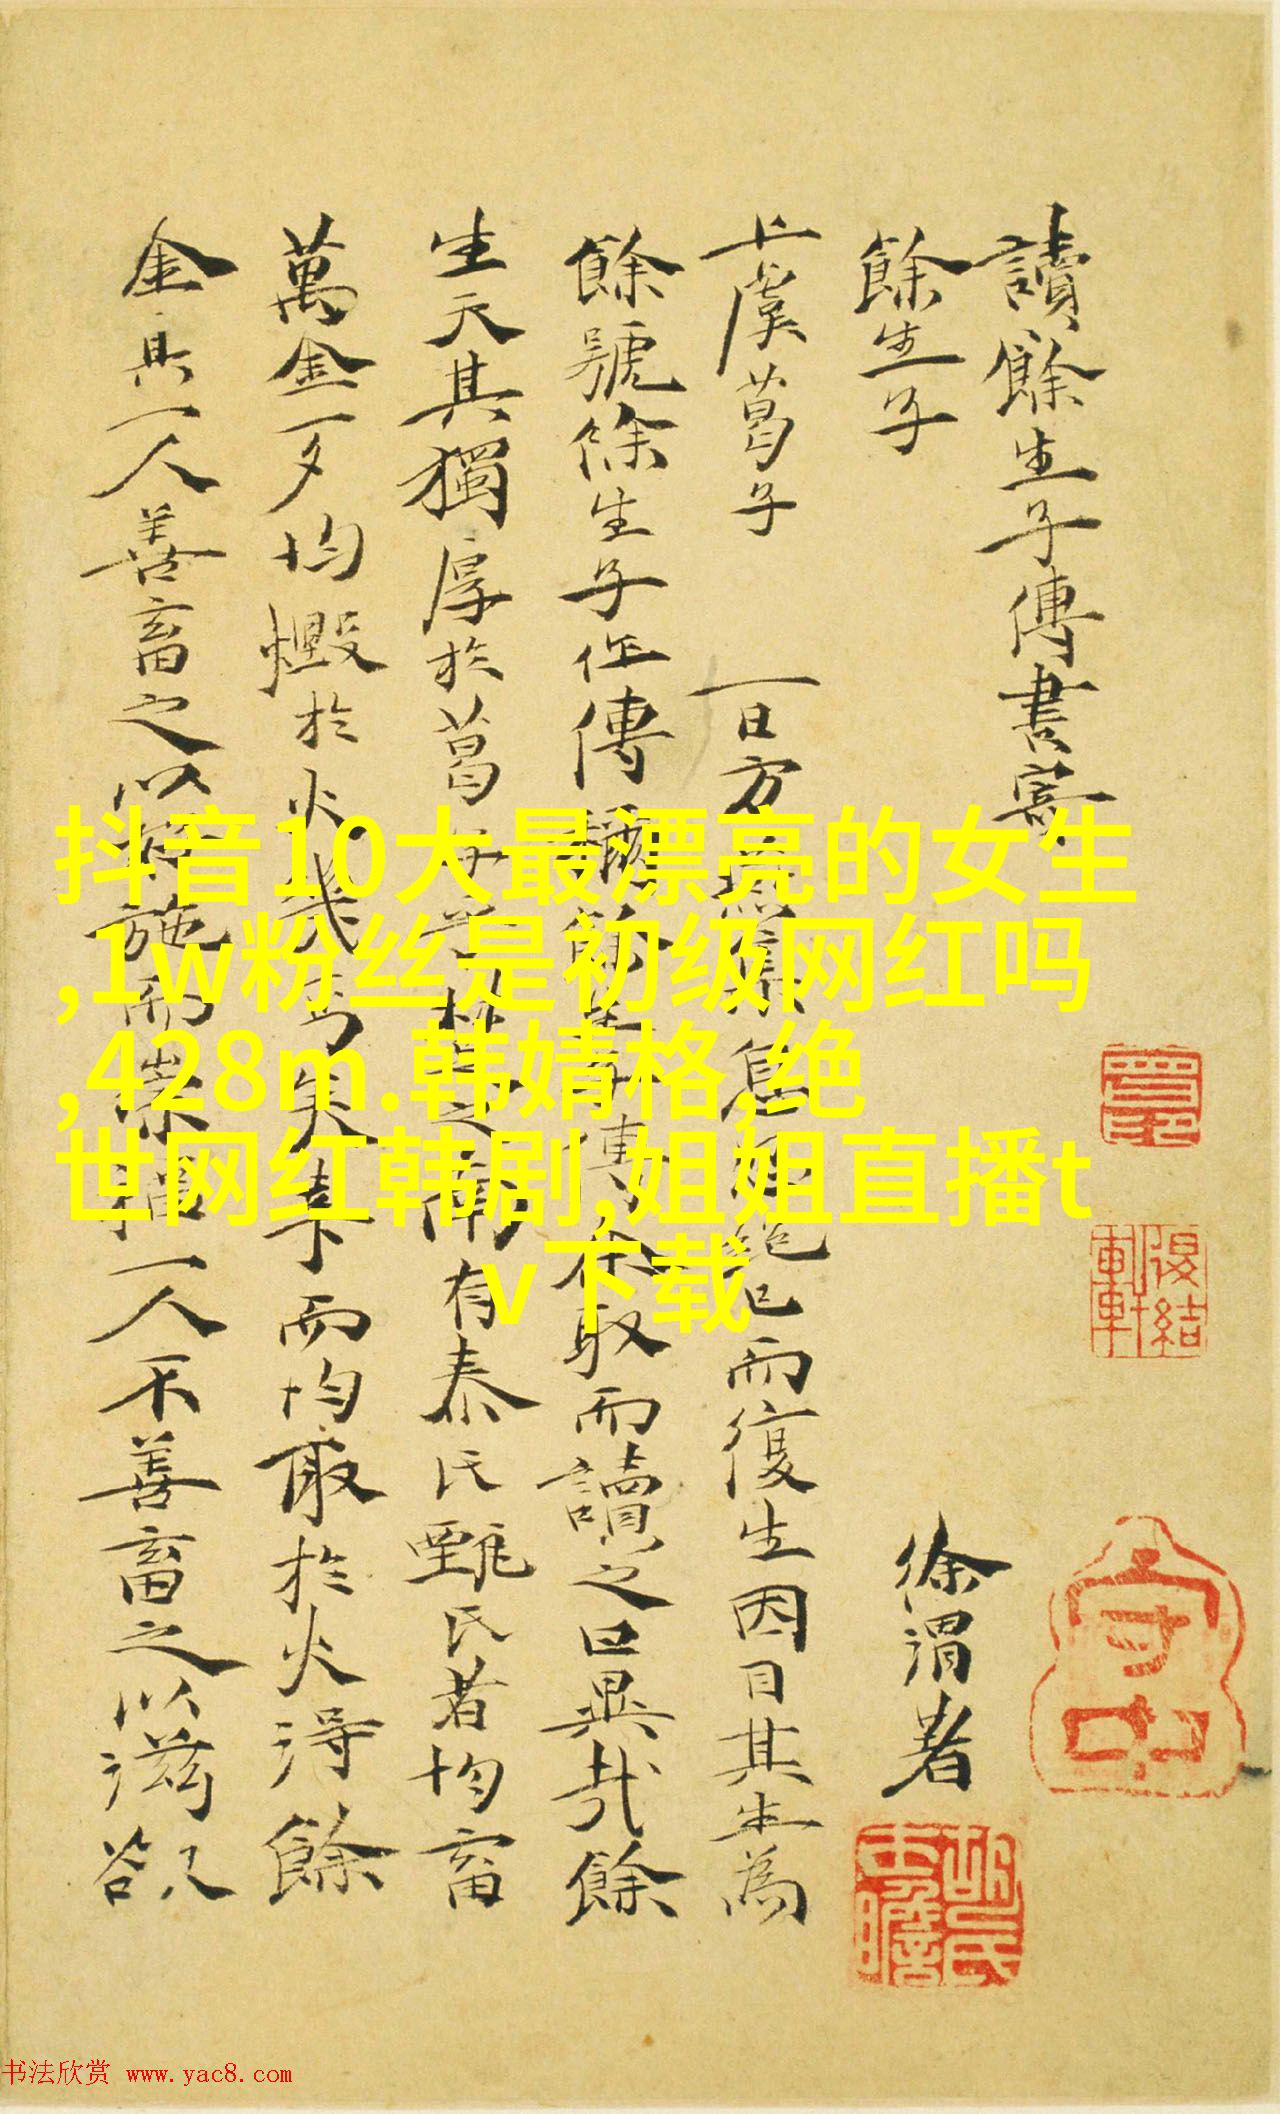 讀餘生子傳書寄
餘生子
徐渭著
上虞葛子 一日方燕集息 絕已而復生因目其生為
餘號餘生子任傳 餘生子傳 余取而讀之曰異哉餘
生天其獨厚於葛 有秦氏甄氏者均畜
萬金一夕均燬於火 失 而均取於火得餘
金其一人善畜之以 施而 一人不善畜之以滋欲
抖音10大最漂亮的女生
,1w粉丝是初级网红吗
,428m.韩婧格,绝
世网红韩剧,姐姐直播t
v下载
守中
书法欣赏 www.yac8.com